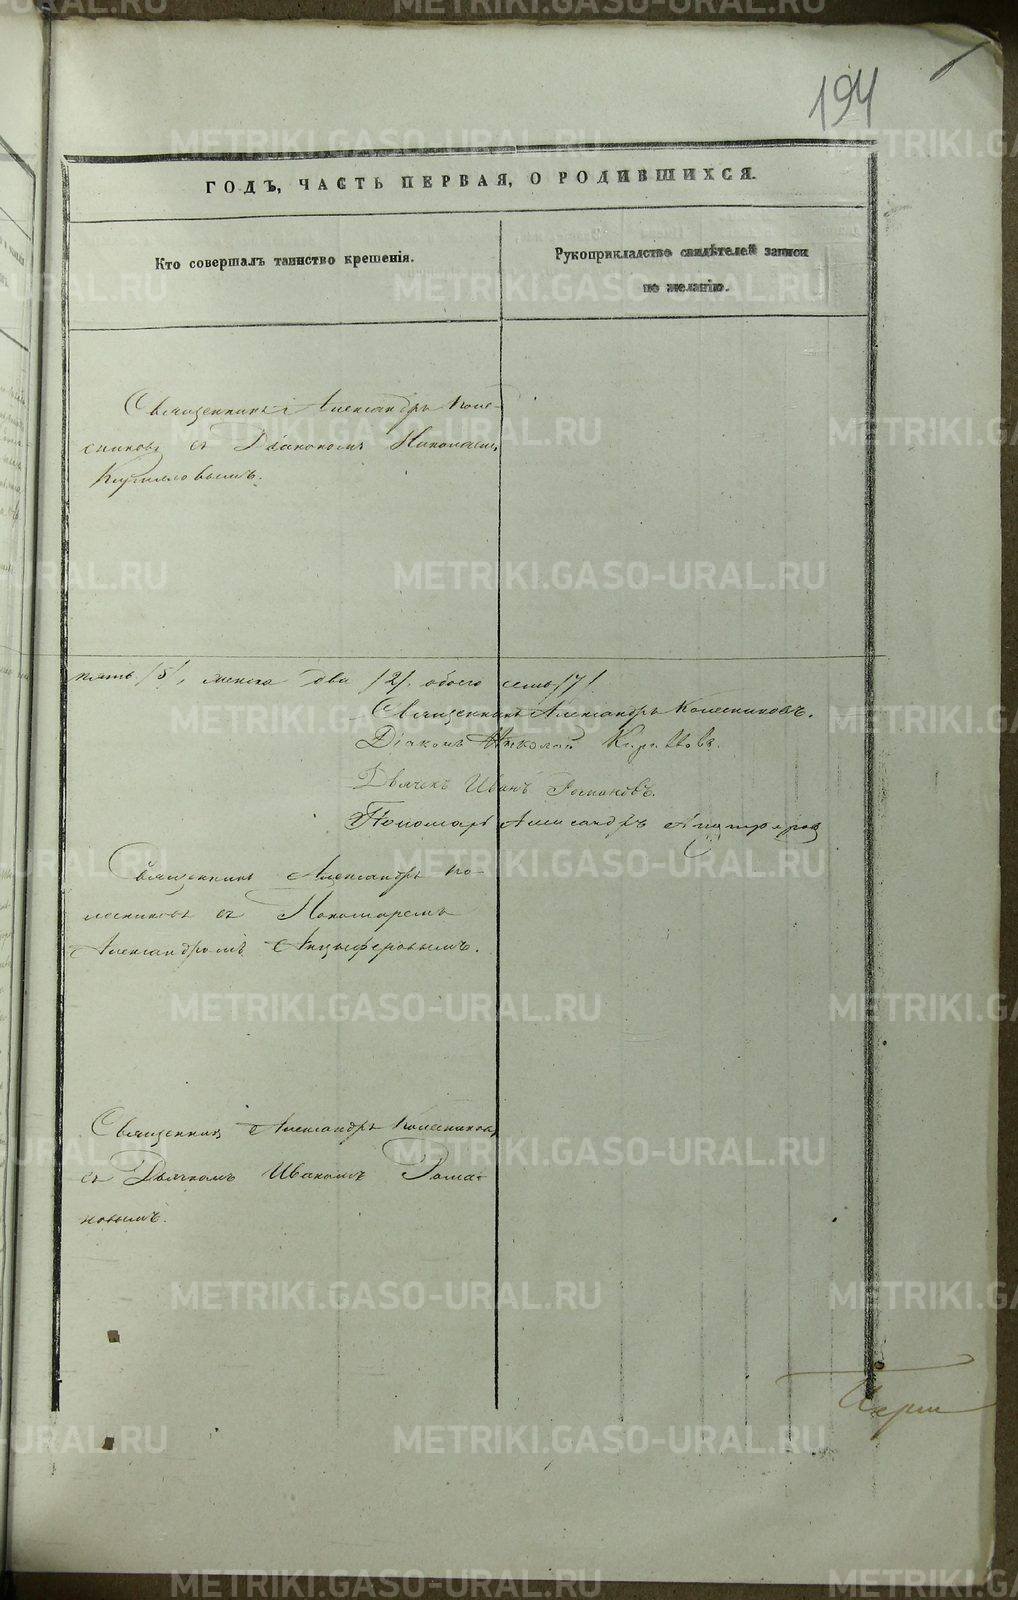 194
ГОДЪ, ЧАСТЬ ПЕРВАЯ, О РОДИВШИХСЯ.
Кто совершалъ таинство крещенія.
Рукоприкладство свидѣтелей записи
по желанію.
Священникъ Александръ Коле-
сниковъ съ Діакономъ Николаемъ
пять /5/, женска два /2/. обоего семь /7/.
Священникъ Александръ Колесниковъ.
Діаконъ Николай
Дьячекъ Иванъ Романовъ.
Пономарь Александръ Анцыферовъ
Священникъ Александръ Ко-
лесниковъ съ Пономаремъ
Александромъ Анцыферовымъ.
Священникъ Александръ Колесниковъ
съ Дьячкомъ Иваномъ Рома-
новымъ.
METRIKI.GASO-URAL.RU